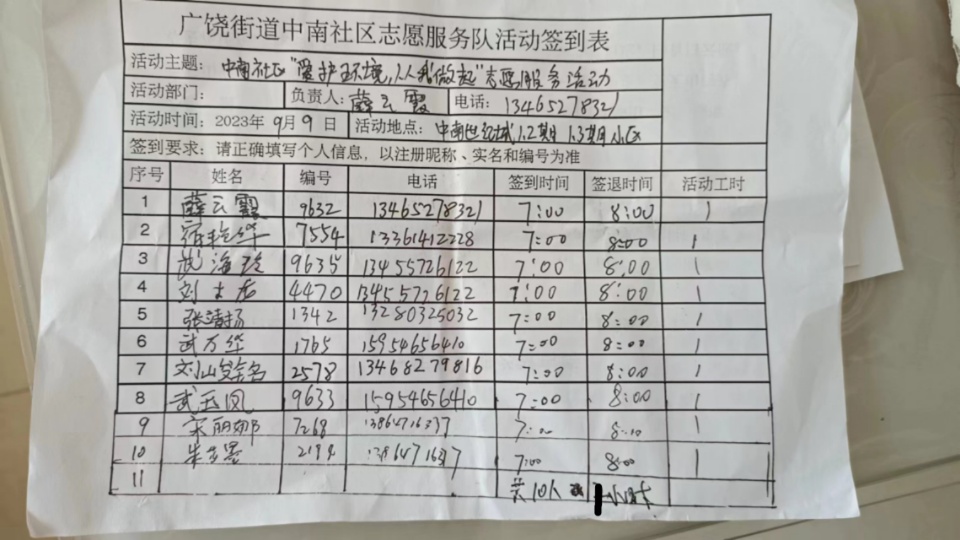 广饶街道中南社区志愿服务队活动签到表
活动主题: 中南社区"爱护环境,人人我做起"志愿服务活动
活动部门: 负责人: 薛云霞 电话: 13465278321
活动时间: 2023年 9月 9日 活动地点: 中南世纪城1.2期 1.3期小区
签到要求: 请正确填写个人信息, 以注册昵称、实名和编号为准
序号 姓名 编号 电话 签到时间 签退时间 活动工时
1 薛云霞 9632 13465278321 7:00 8:00 1
2 7554 13361412228 7:00 8:00 1
3 武海玲 9635 13455726122 7:00 8:00 1
4 刘 4470 13455726122 7:00 8:00 1
5 张清扬 1342 13280325032 7:00 8:00 1
6 武万华 1765 15954656410 7:00 8:00 1
7 刘山 2578 13468279816 7:00 8:00 1
8 武玉凤 9633 15954656410 7:00 8:00 1
9 宋丽娜 7268 7:00 8:00 1
10 朱 2194 7:00 8:00 1
11 共10人 小时